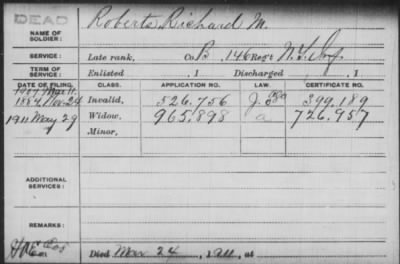 DEAD
NAME OF SOLDIER: Roberts, Richard M.
SERVICE: Late rank, Co. B, 146 Reg't N.Y. Inf.
TERM OF SERVICE: Enlisted , 1 Discharged , 1
DATE OF FILING. CLASS. APPLICATION NO. LAW. CERTIFICATE NO.
1884 Nov. 24 Invalid, 526.756 399.189
1911 May 29 Widow, 965.898 a 726.957
Minor,
ADDITIONAL SERVICES:
REMARKS:
Died Mar 24, 1911, at